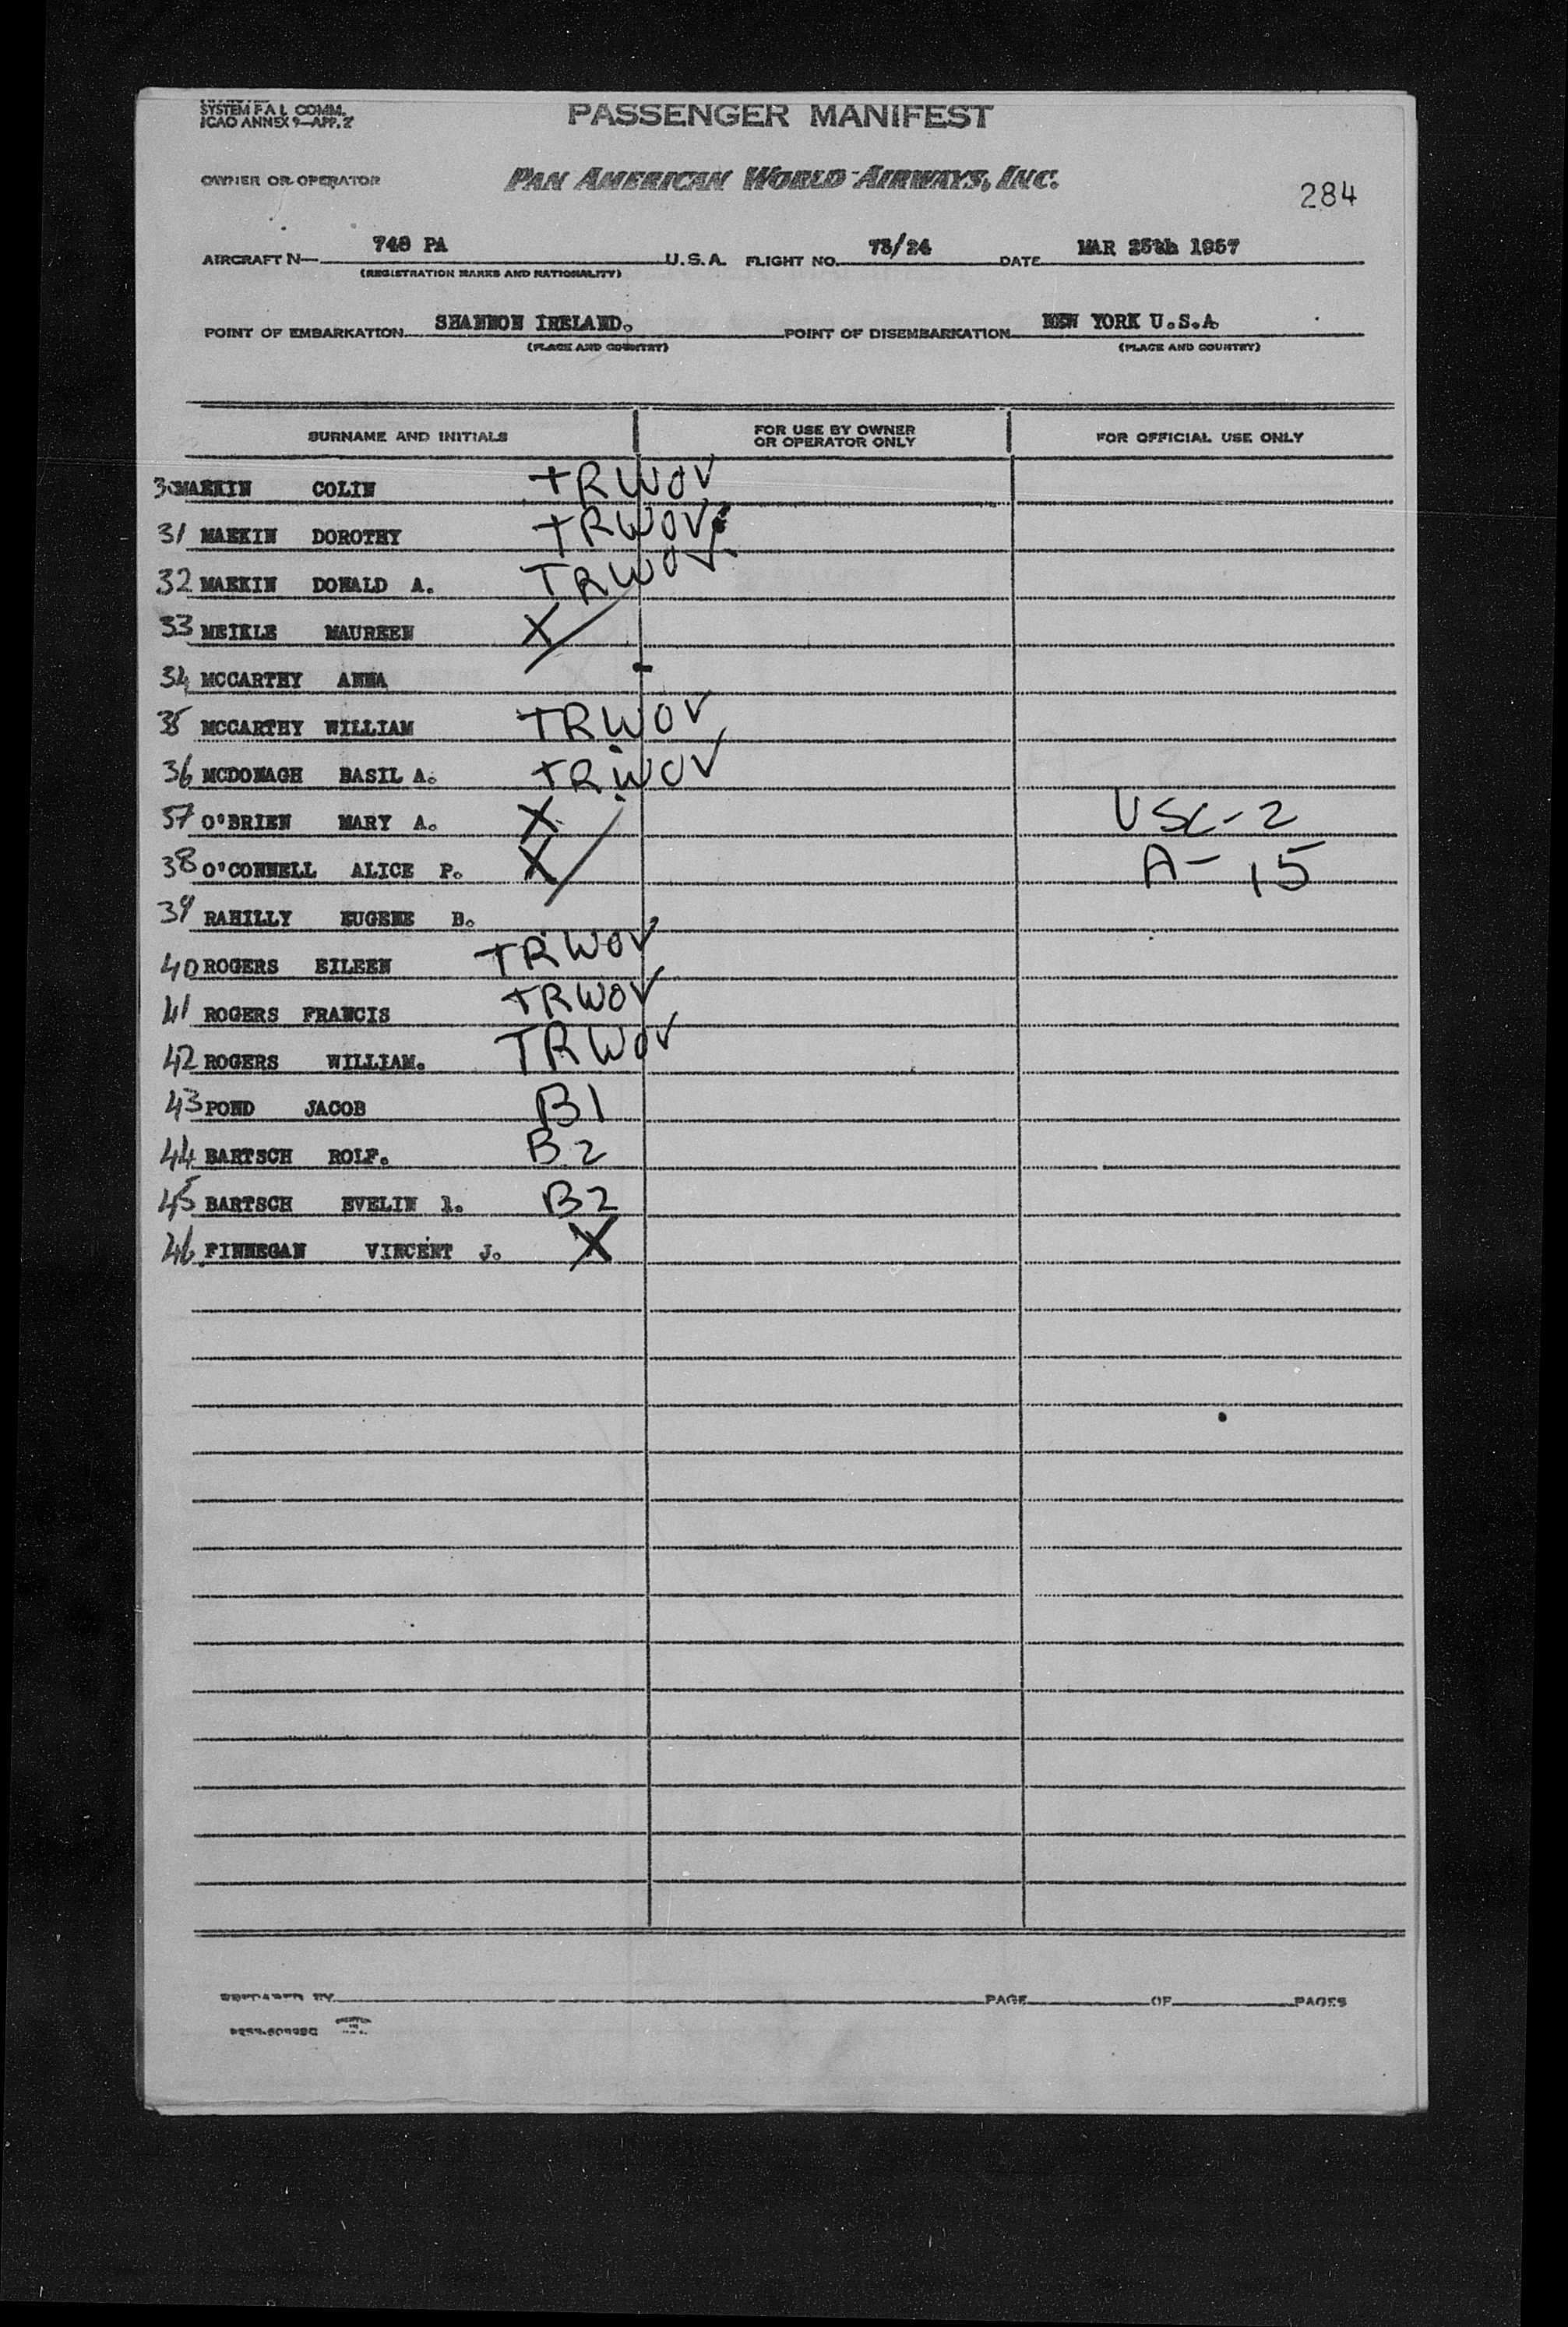 SYSTEM F.A.L. COMM.
ICAO ANNEX 9—APP. 2
PASSENGER MANIFEST
OWNER OR OPERATOR
PAN AMERICAN WORLD AIRWAYS, INC.
284
AIRCRAFT N— PA U.S.A. FLIGHT NO. DATE MAR 25th 1957
(REGISTRATION MARKS AND NATIONALITY)
POINT OF EMBARKATION SHANNON IRELAND. POINT OF DISEMBARKATION NEW YORK U.S.A.
(PLACE AND COUNTRY) (PLACE AND COUNTRY)
SURNAME AND INITIALS FOR USE BY OWNER OR OPERATOR ONLY FOR OFFICIAL USE ONLY
30 COLIN TRWOV
31 DOROTHY TRWOV
32 DONALD A. TRWOV
33 MEIKLE MAUREEN X
34 MCCARTHY ANNA
35 MCCARTHY WILLIAM TRWOV
36 MCDONAGH BASIL A. TRWOV
37 O'BRIEN MARY A. X USC-2
38 O'CONNELL ALICE P. X A-15
39 RAHILLY EUGENE B.
40 ROGERS EILEEN TRWOV
41 ROGERS FRANCIS TRWOV
42 ROGERS WILLIAM. TRWOV
43 POND JACOB B1
44 BARTSCH ROLF. B2
45 BARTSCH EVELIN l. B2
46 FINNEGAN VINCENT J. X
PREPARED BY PAGE OF PAGES